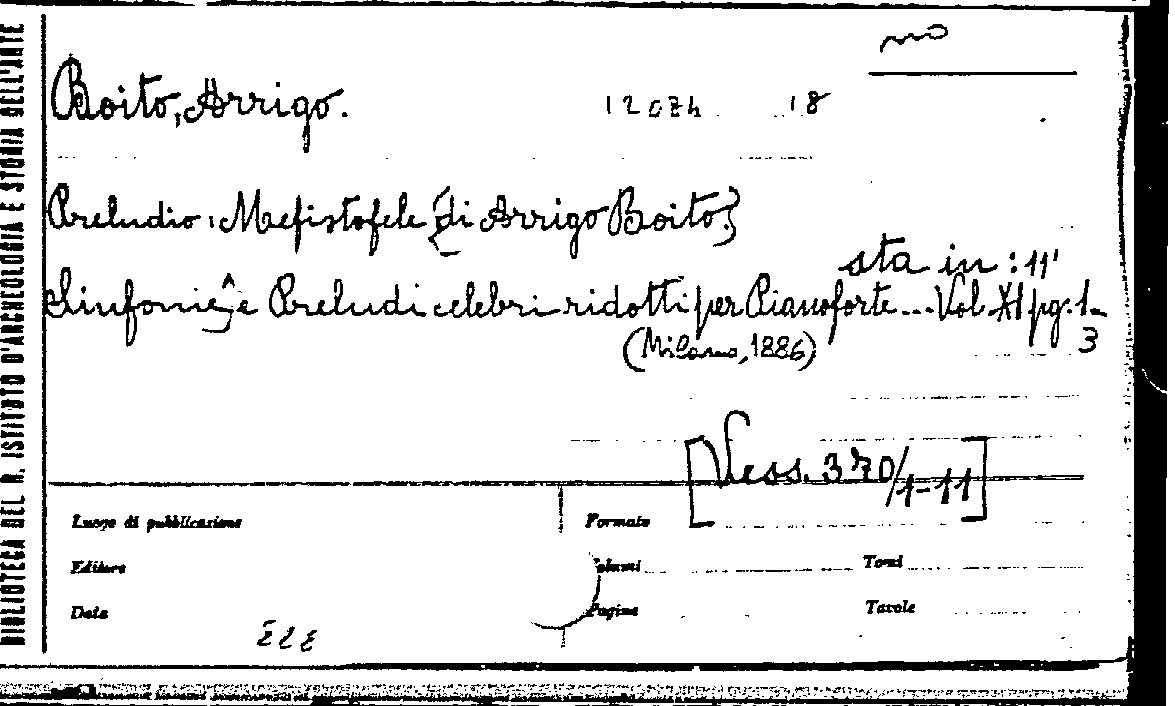 BIBLIOTECA DEL R. ISTITUTO D'ARCHEOLOGIA E STORIA DELL'ARTE
no
Boito, Arrigo.
12074 18
Preludio: Mefistofele {di Arrigo Boito.}
sta in: 11'
Sinfonie e Preludi celebri ridotti per Pianoforte... Vol. XI pg. 1-3
(Milano, 1886)
[Vess. 370/1-11]
Luogo di pubblicazione
Formato
Editore
Volumi
Tomi
Data
Pagine
Tavole